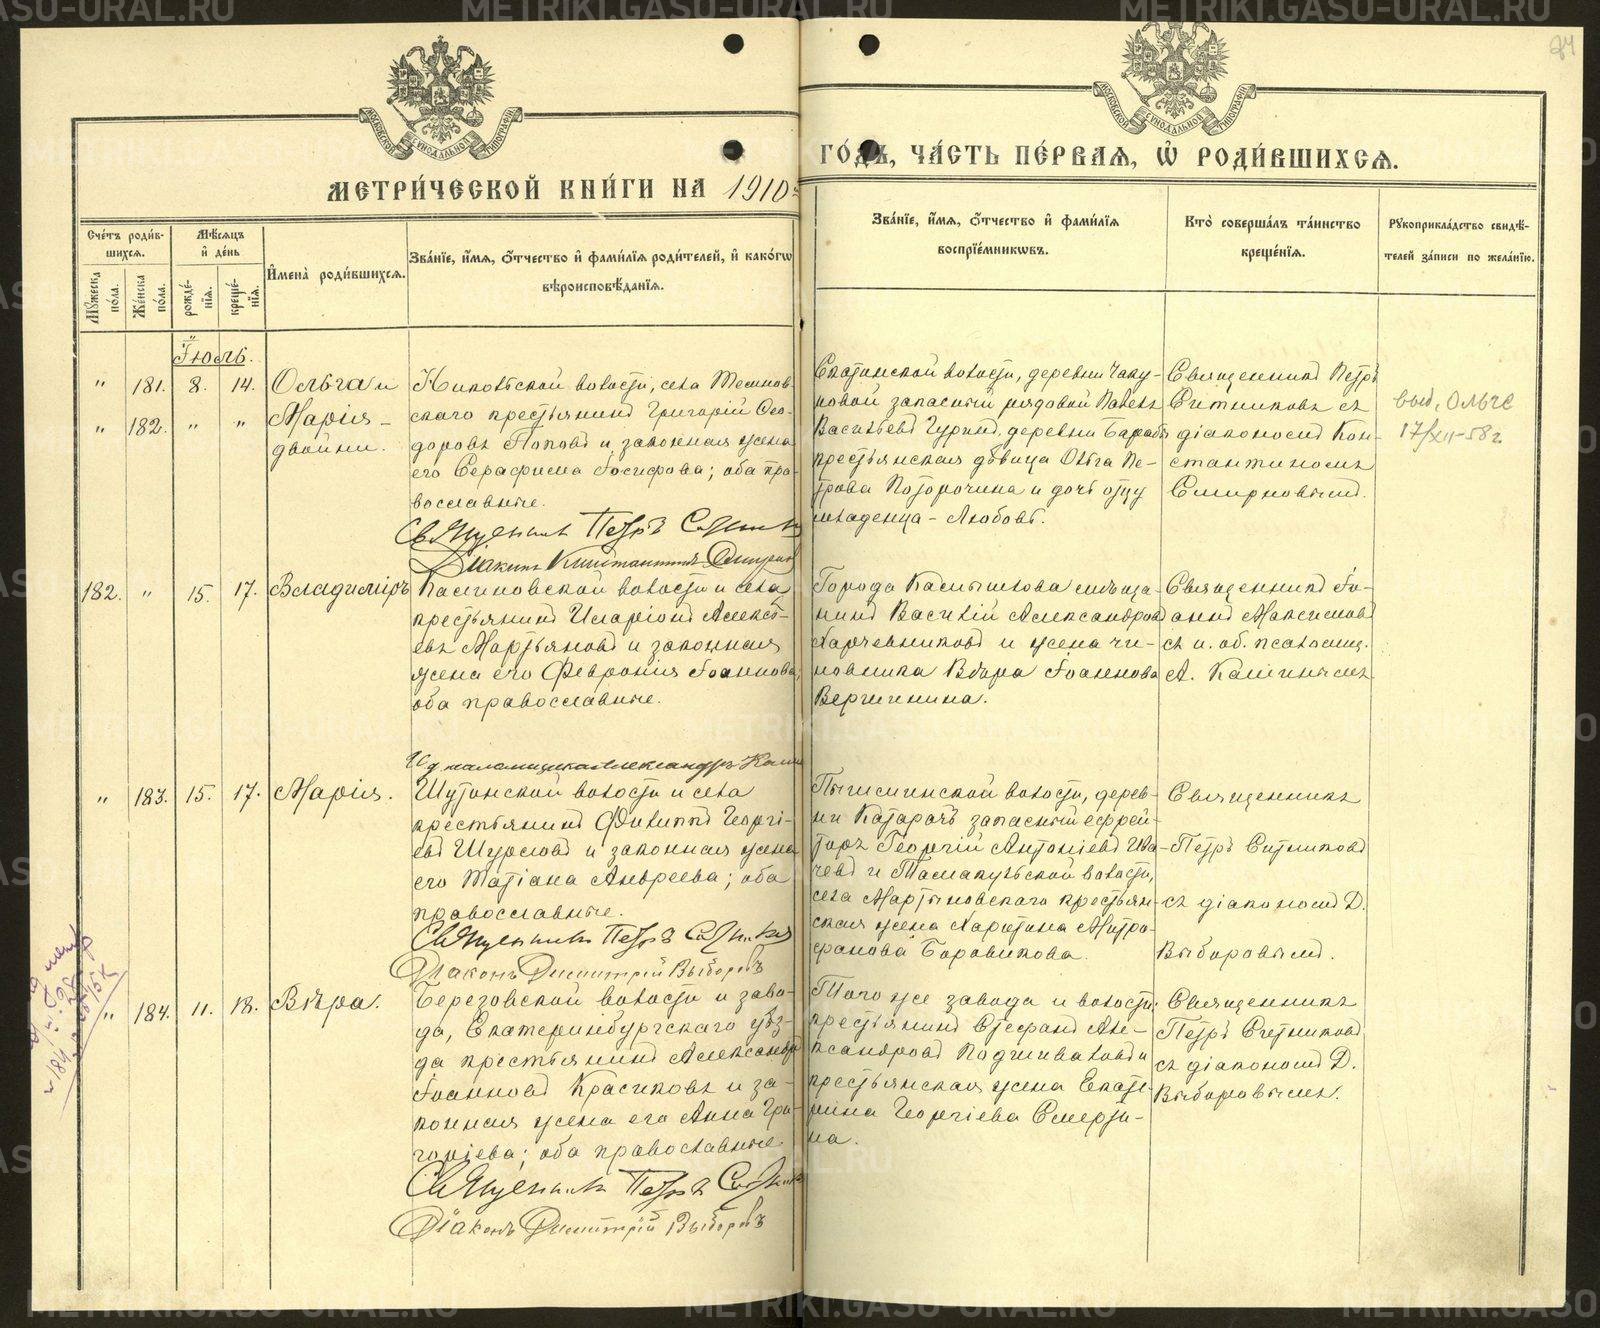 24
МЕТРИ́ЧЕСКОЙ КНИ́ГИ НА 1910 ГО́ДЪ, ЧА́СТЬ ПЕ́РВАЯ, Ѽ РОДИ́ВШИХСЯ.
Сче́тъ роди́вшихся.
Мꙋжеска по́ла.
Же́нска по́ла.
Мѣ́сяцъ и҆ де́нь
рожде́нїѧ.
креще́нїѧ.
И҆мена̀ роди́вшихсѧ.
Зва́нїе, и҆́мѧ, ѻ҆́тчество и҆ фами́лїѧ роди́телей, и҆ како́гѡ
вѣроисповѣ́данїѧ.
Зва́нїе, и҆́мѧ, ѻ҆́тчество и҆ фами́лїѧ
воспрїе́мникѡвъ.
Кто̀ соверша́лъ та́инство
креще́нїѧ.
Рꙋкоприкла́дство свидѣ́-
телей за́писи по жела́нїю.
Іюль.
" 181. 8. 14. Ольга и
" 182. " " Марія -
двойни.
волости, села
скаго крестьянинъ Григорій Ѳео-
доровъ Поповъ и законная жена
его Серафима Іосифова; оба пра-
вославные.
Священникъ Петръ
Діаконъ Константинъ Смирновъ
Скатинской волости, деревни Чаку-
новой запасный рядовой Павелъ
Васильевъ Гуринъ, деревни
крестьянская дѣвица Ольга Пе-
трова Поторочина и дочь отцу
младенца - Любовь.
Священникъ Петръ
Ситниковъ съ
діакономъ Кон-
стантиномъ
Смирновымъ.
выд. Ольге
17/XII-58 г.
182. " 15. 17. Владиміръ
Каминовской волости и села
крестьянинъ Иларіонъ Алексѣ-
евъ Мартьяновъ и законная
жена его Февронія Іоаннова;
оба православные.
И. д. псаломщика Александръ
Города Камышлова мѣща-
нинъ Василій Александровъ
Харчевниковъ и жена чи-
новника Вѣра Іоаннова
Вергинина.
Священникъ Іо-
аннъ Максимовъ
съ и. об. псаломщ.
А. Калининымъ
" 183. 15. 17. Марія.
Шутинской волости и села
крестьянинъ Филиппъ Георгі-
евъ Шурмовъ и законная жена
его Татіана Андреева; оба
православные.
Священникъ Петръ Ситниковъ
Діаконъ Димитрій Выборовъ
Пышминской волости, дерев-
ни Катарачъ запасный ефрей-
торъ Георгій Антоніевъ Ива-
чевъ и Тамакульской волости,
села Мартыновскаго крестьян-
ская жена Харитина Митро-
фанова Боровикова.
Священникъ
Петръ Ситниковъ
съ діакономъ Д.
Выборовымъ.
" 184. 11. 18. Вѣра.
Березовской волости и заво-
да, Екатеринбургскаго уѣз-
да крестьянинъ Александръ
Іоанновъ Красиковъ и за-
конная жена его Анна Гри-
горіева; оба православные.
Священникъ Петръ Ситниковъ
Діаконъ Димитрій Выборовъ
Того же завода и волости,
крестьянинъ Стефанъ Але-
ксандровъ Подшиваловъ и
крестьянская жена Екате-
рина Георгіева Смерти-
на.
Священникъ
Петръ Ситниковъ
съ діакономъ Д.
Выборовымъ.
METRIKI.GASO-URAL.RU